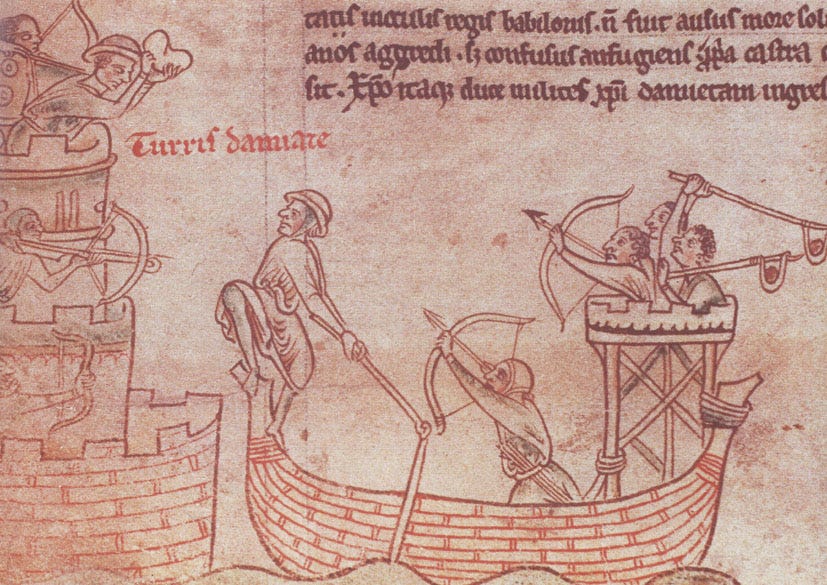 tatis in oculis regis babilonis. n̄ fuit ausus more sol
anos aggredi. sꝫ confusus aufugiens ꝓp̄a castra
sit. Xp̄o itaqꝫ duce milites xp̄i damietam ingres
Turris damiate